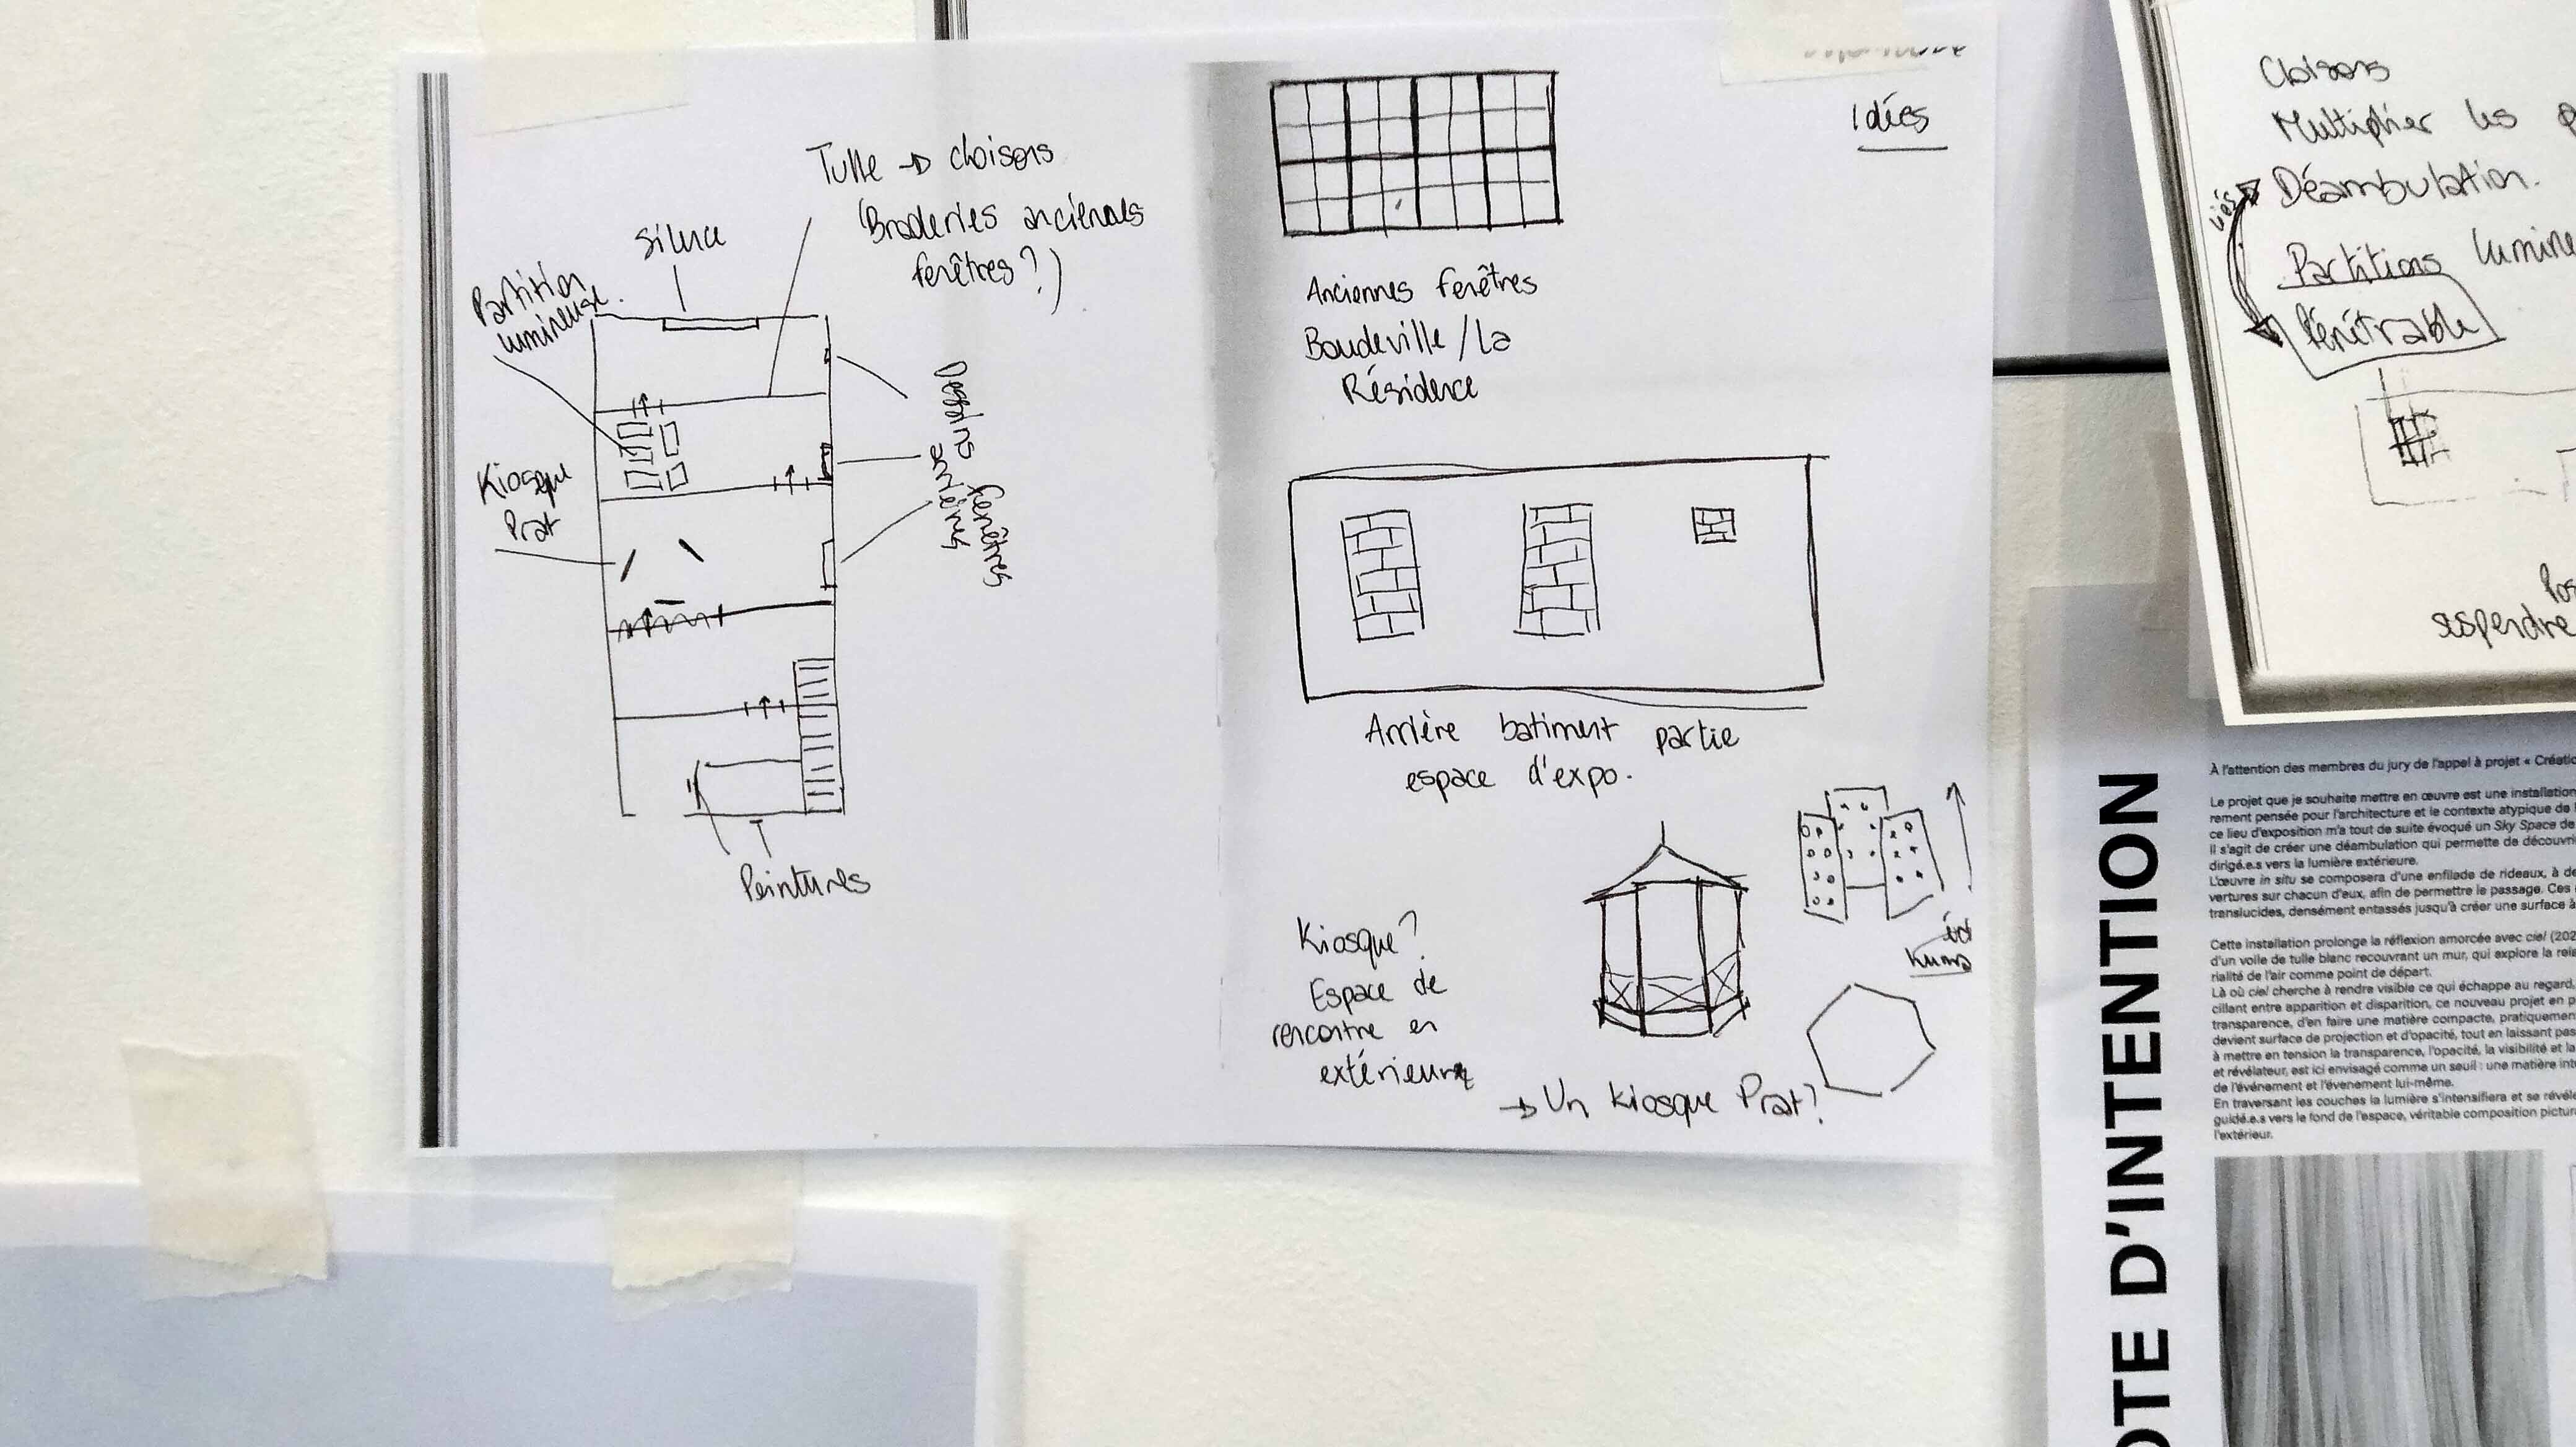 Tulle → cloisons
(Broderies anciennes
fenêtres ?)
Silence
Partition
lumineuse.
Kiosque
Prat
Dessins fenêtres
arrières
Peintures
Idées
Anciennes fenêtres
Boudeville / La
Résidence
Arrière batiment partie
espace d'expo.
Kiosque ?
Espace de
rencontre en
extérieur
→ Un kiosque Prat ?
Kuma
Cloisons
Multiplier les
Déambulation.
liés
Partitions
Pénétrable
suspendre
OTE D'INTENTION
À l'attention des membres du jury de l'appel à projet « Créatio
Le projet que je souhaite mettre en œuvre est une installation
rement pensée pour l'architecture et le contexte atypique de
ce lieu d'exposition m'a tout de suite évoqué un Sky Space de
Il s'agit de créer une déambulation qui permette de découvri
dirigé.e.s vers la lumière extérieure.
L'œuvre in situ se composera d'une enfilade de rideaux, à de
vertures sur chacun d'eux, afin de permettre le passage. Ces
translucides, densément entassés jusqu'à créer une surface à
Cette installation prolonge la réflexion amorcée avec ciel (202
d'un voile de tulle blanc recouvrant un mur, qui explore la
rialité de l'air comme point de départ.
Là où ciel cherche à rendre visible ce qui échappe au regard,
cillant entre apparition et disparition, ce nouveau projet en p
transparence, d'en faire une matière compacte, pratiquement
devient surface de projection et d'opacité, tout en laissant pas
à mettre en tension la transparence, l'opacité, la visibilité et la
et révélateur, est ici envisagé comme un seuil : une matière
de l'événement et l'évenement lui-même.
En traversant les couches la lumière s'intensifiera et se révéle
guidé.e.s vers le fond de l'espace, véritable composition pictur
l'extérieur.